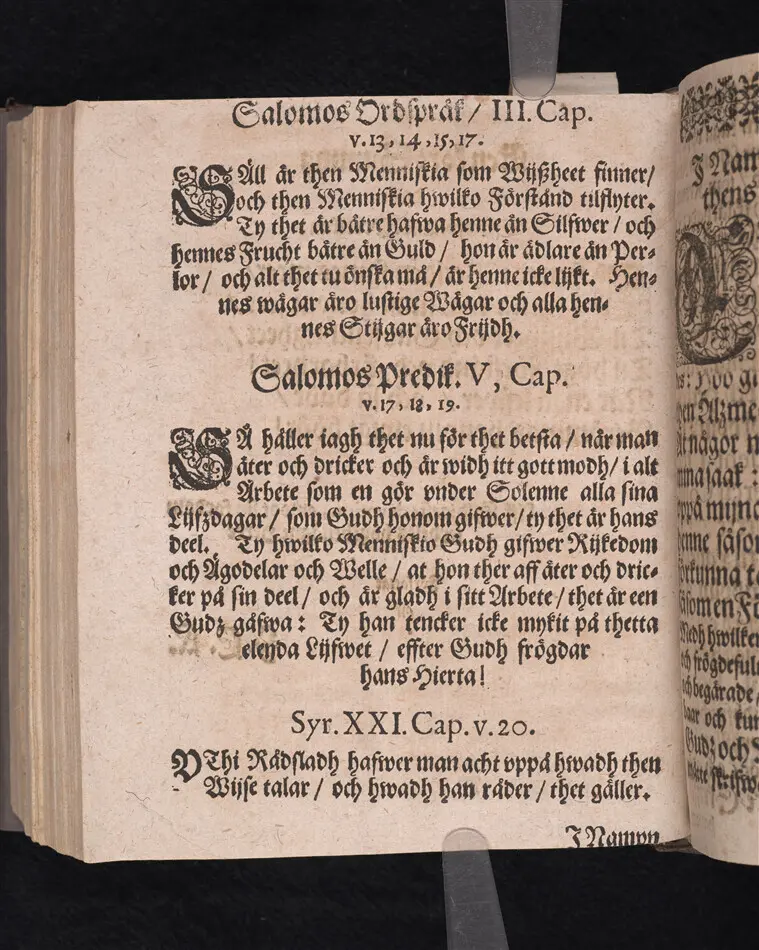 Salomos Ordspråk / III. Cap.
v. 13, 14, 15, 17.
SÄll är then Menniskia som Wijßheet finner /
och then Menniskia hwilko Förstånd tilflyter.
Ty thet är bätre hafwa henne än Silfwer / och
hennes Frucht bätre än Guld / hon är ädlare än Per-
lor / och alt thet tu önska må / är henne icke lijkt. Hen-
nes wägar äro lustige Wägar och alla hen-
nes Stijgar äro Frijdh.
Salomos Predik. V, Cap.
v. 17, 18, 19.
SÅ håller iagh thet nu för thet betsta / när man
äter och dricker och är widh itt gott modh / i alt
Arbete som en gör vnder Solenne alla sina
Lijfzdagar / som Gudh honom gifwer / ty thet är hans
deel. Ty hwilko Menniskio Gudh gifwer Rijkedom
och Ägodelar och Welle / at hon ther aff äter och dric-
ker på sin deel / och är gladh i sitt Arbete / thet är een
Gudz gåfwa: Ty han tencker icke mykit på thetta
elenda Lijfwet / effter Gudh frögdar
hans Hierta!
Syr. XXI. Cap. v. 20.
VThi Rådsladh hafwer man acht vppå hwadh then
Wijse talar / och hwadh han råder / thet gäller.
J Nampn
J Nam
thens
en Alzme
någor
uppå
enne såso
förkunna
som en Fö
hwilken
frögdeful
begärade /
och kun
Gudz och
skrifw